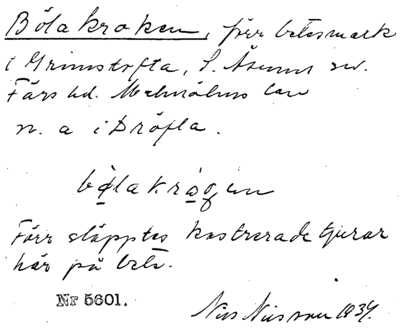 Böla kroken, förr betesmark
i Grimstofta, S. Åsums sn.
Färs hd. Malmöhus län
n. a i Dröfla.
bǫ̀lakrągen
Förr släpptes kastrerade tjurar
här på bete.
Nr 5601.
Nils Nilsson 1934.